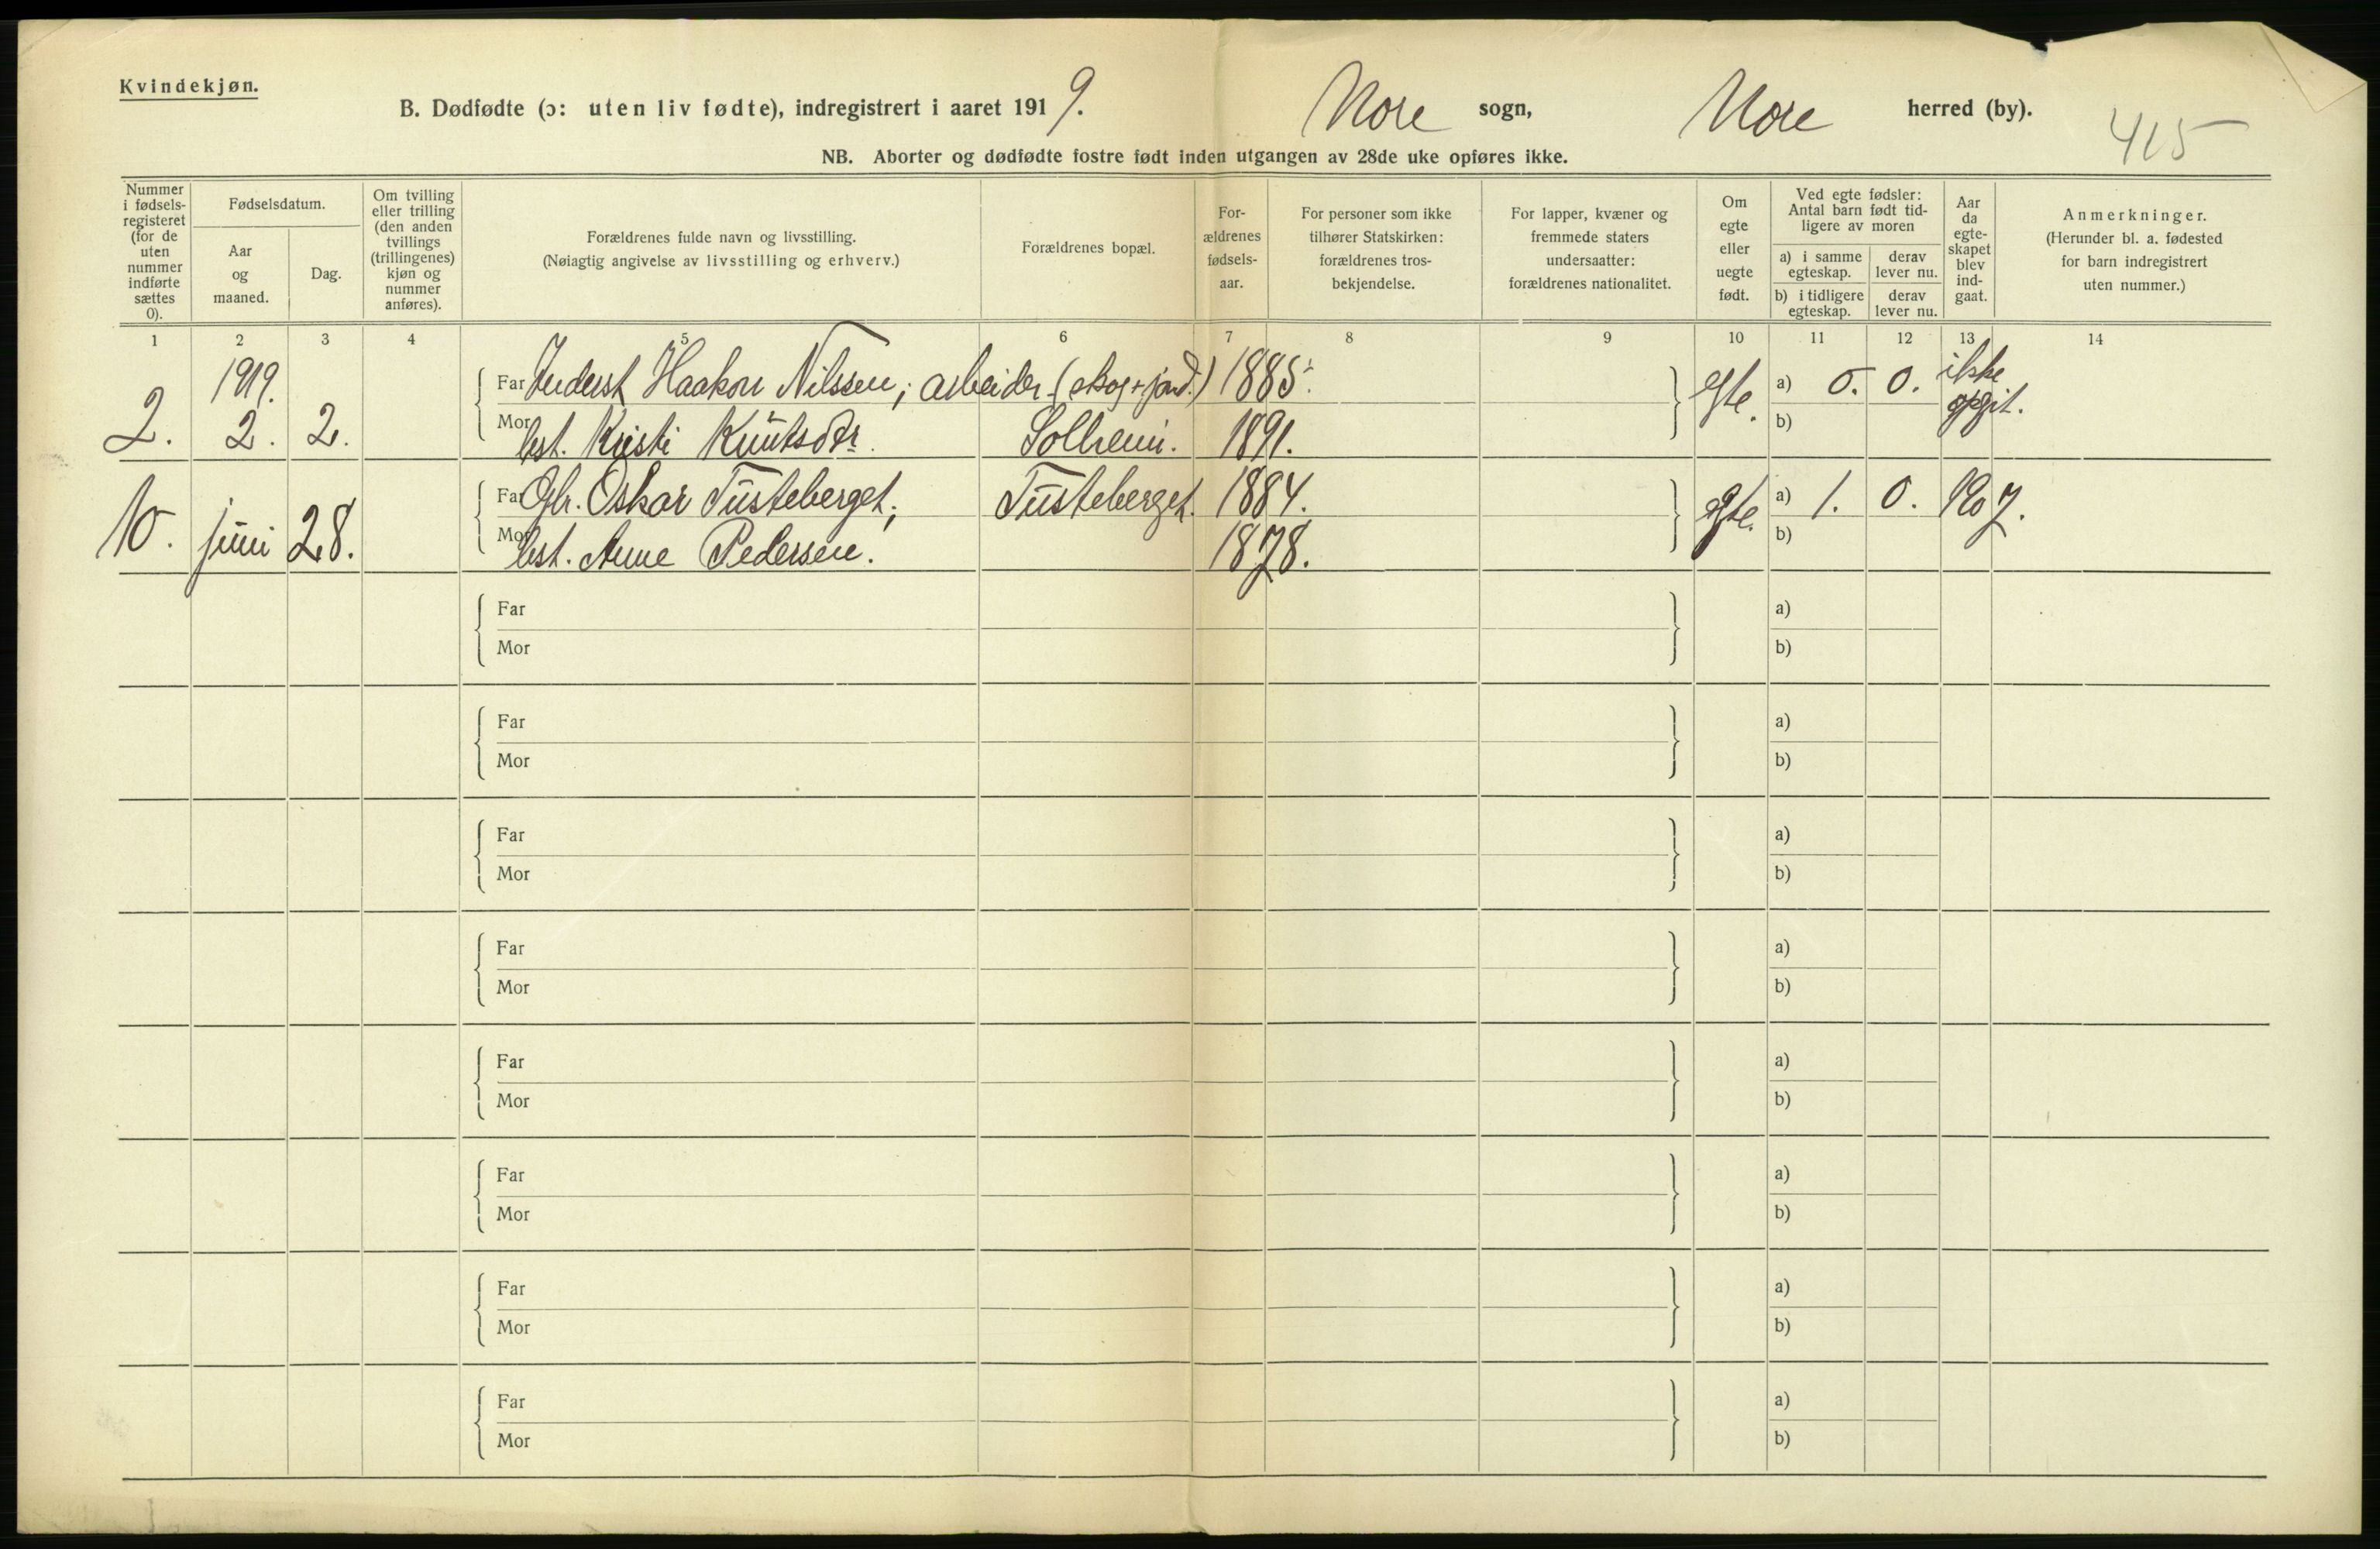 Kvindekjøn.
B. Dødfødte (ɔ: uten liv fødte), indregistrert i aaret 1919. Nore sogn, Nore herred (by).
415
NB. Aborter og dødfødte fostre født inden utgangen av 28de uke opføres ikke.
Nummer i fødsels-registeret (for de uten nummer indførte sættes 0).
Fødselsdatum.
Aar og maaned.
Dag.
Om tvilling eller trilling (den anden tvillings (trillingenes) kjøn og nummer anføres).
Forældrenes fulde navn og livsstilling.
(Nøiagtig angivelse av livsstilling og erhverv.)
Forældrenes bopæl.
For-ældrenes fødsels-aar.
For personer som ikke tilhører Statskirken: forældrenes tros-bekjendelse.
For lapper, kvæner og fremmede staters undersaatter: forældrenes nationalitet.
Om egte eller uegte født.
Ved egte fødsler: Antal barn født tid-ligere av moren
a) i samme egteskap.
derav lever nu.
b) i tidligere egteskap.
derav lever nu.
Aar da egte-skapet blev ind-gaat.
Anmerkninger.
(Herunder bl. a. fødested for barn indregistrert uten nummer.)
1 2 3 4 5 6 7 8 9 10 11 12 13 14
1919.
2. 2. 2.
Far Inderst Haakon Nilssen; arbeider (skog + jord.) 1885. egte. a) 0. 0. ikke opgit.
Mor hst. Kristi Knutsdtr. Solheim. 1891. b)
10. juni 28.
Far Gbr. Oskar Tusteberget; Tusteberget. 1884. egte. a) 1. 0. 1907.
Mor hst. Anne Pedersen. 1878. b)
Far a)
Mor b)
Far a)
Mor b)
Far a)
Mor b)
Far a)
Mor b)
Far a)
Mor b)
Far a)
Mor b)
Far a)
Mor b)
Far a)
Mor b)